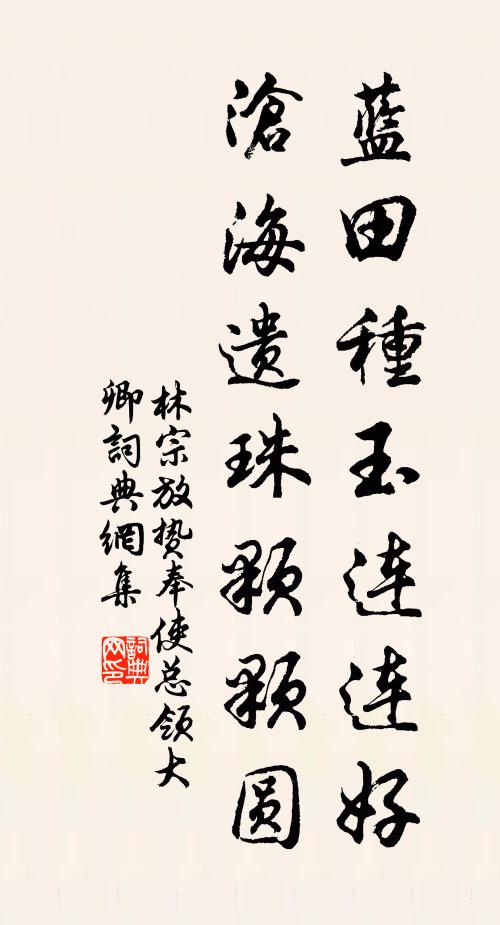 藍田種玉连连好
滄海遗珠颗颗圆
林宗放贽奉使总领大
卿詞典網集
詞典网印